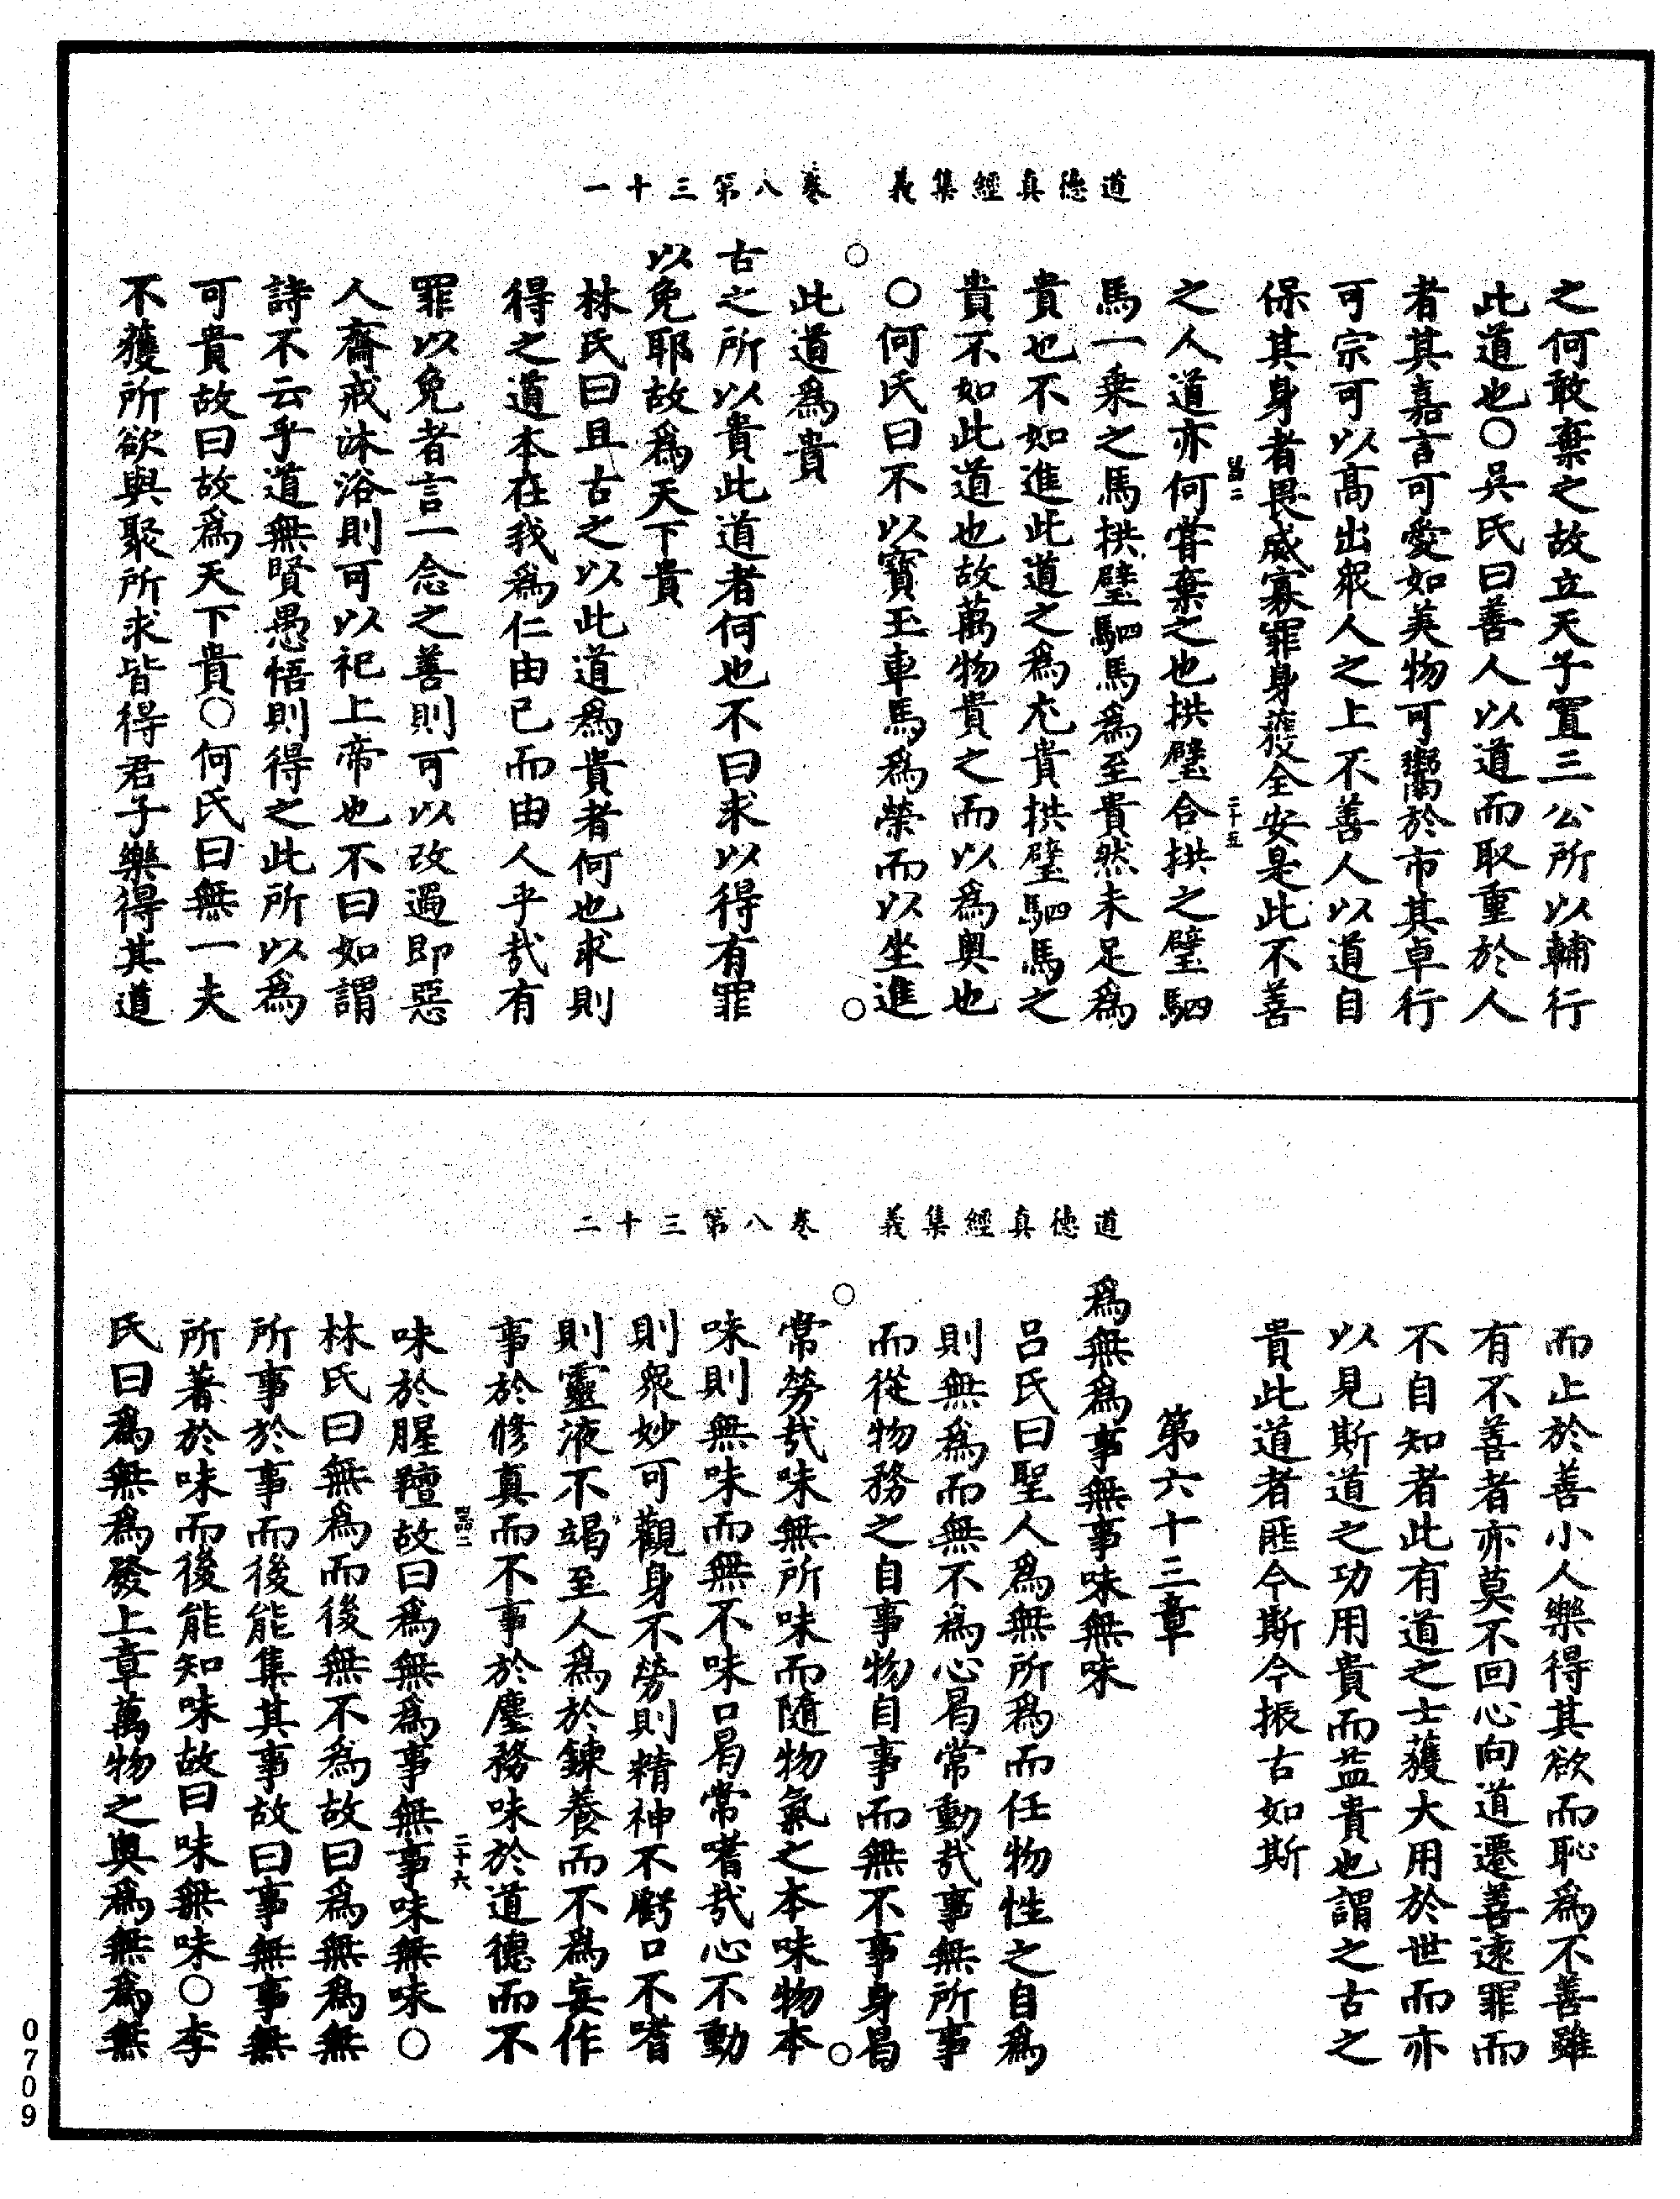 道德真經集義　卷八第三十一
之何敢棄之故立天子置三公所以輔行
此道也○吳氏曰善人以道而取重於人
者其嘉言可愛如美物可鬻於市其卓行
可宗可以高出衆人之上不善人以道自
保其身者畏威寡罪身獲全安是此不善
二十五
之人道亦何甞棄之也拱璧合拱之璧駟
馬一乗之馬拱璧駟馬為至貴然未足為
貴也不如進此道之為尤貴拱璧駟馬之
貴不如此道也故萬物貴之而以為奧也
○何氏曰不以寶玉車馬為榮而以坐進
此道為貴
古之所以貴此道者何也不曰求以得有罪
以免耶故為天下貴
林氏曰且古之以此道為貴者何也求則
得之道本在我為仁由己而由人乎哉有
罪以免者言一念之善則可以改過即惡
人齋戒沐浴則可以祀上帝也不曰如謂
詩不云乎道無賢愚悟則得之此所以為
可貴故曰故為天下貴○何氏曰無一夫
不獲所欲與聚所求皆得君子樂得其道
道德真經集義　卷八第三十二
而止於善小人樂得其欲而恥為不善雖
有不善者亦莫不回心向道遷善逺罪而
不自知者此有道之士獲大用於世而亦
以見斯道之功用貴而益貴也謂之古之
貴此道者匪今斯今振古如斯
第六十三章
為無為事無事味無味
呂氏曰聖人為無所為而任物性之自為
則無為而無不為心曷常動哉事無所事
而從物務之自事物自事而無不事身曷
常勞哉味無所味而隨物氣之本味物本
味則無味而無不味口曷常嗜哉心不動
則衆妙可觀身不勞則精神不虧口不嗜
則靈液不竭至人為於鍊養而不為妄作
事於修真而不事於塵務味於道德而不
二十六
味於腥羶故曰為無為事無事味無味○
林氏曰無為而後無不為故曰為無為無
所事於事而後能集其事故曰事無事無
所著於味而後能知味故曰味無味○李
氏曰為無為發上章萬物之奧為無為無
0709